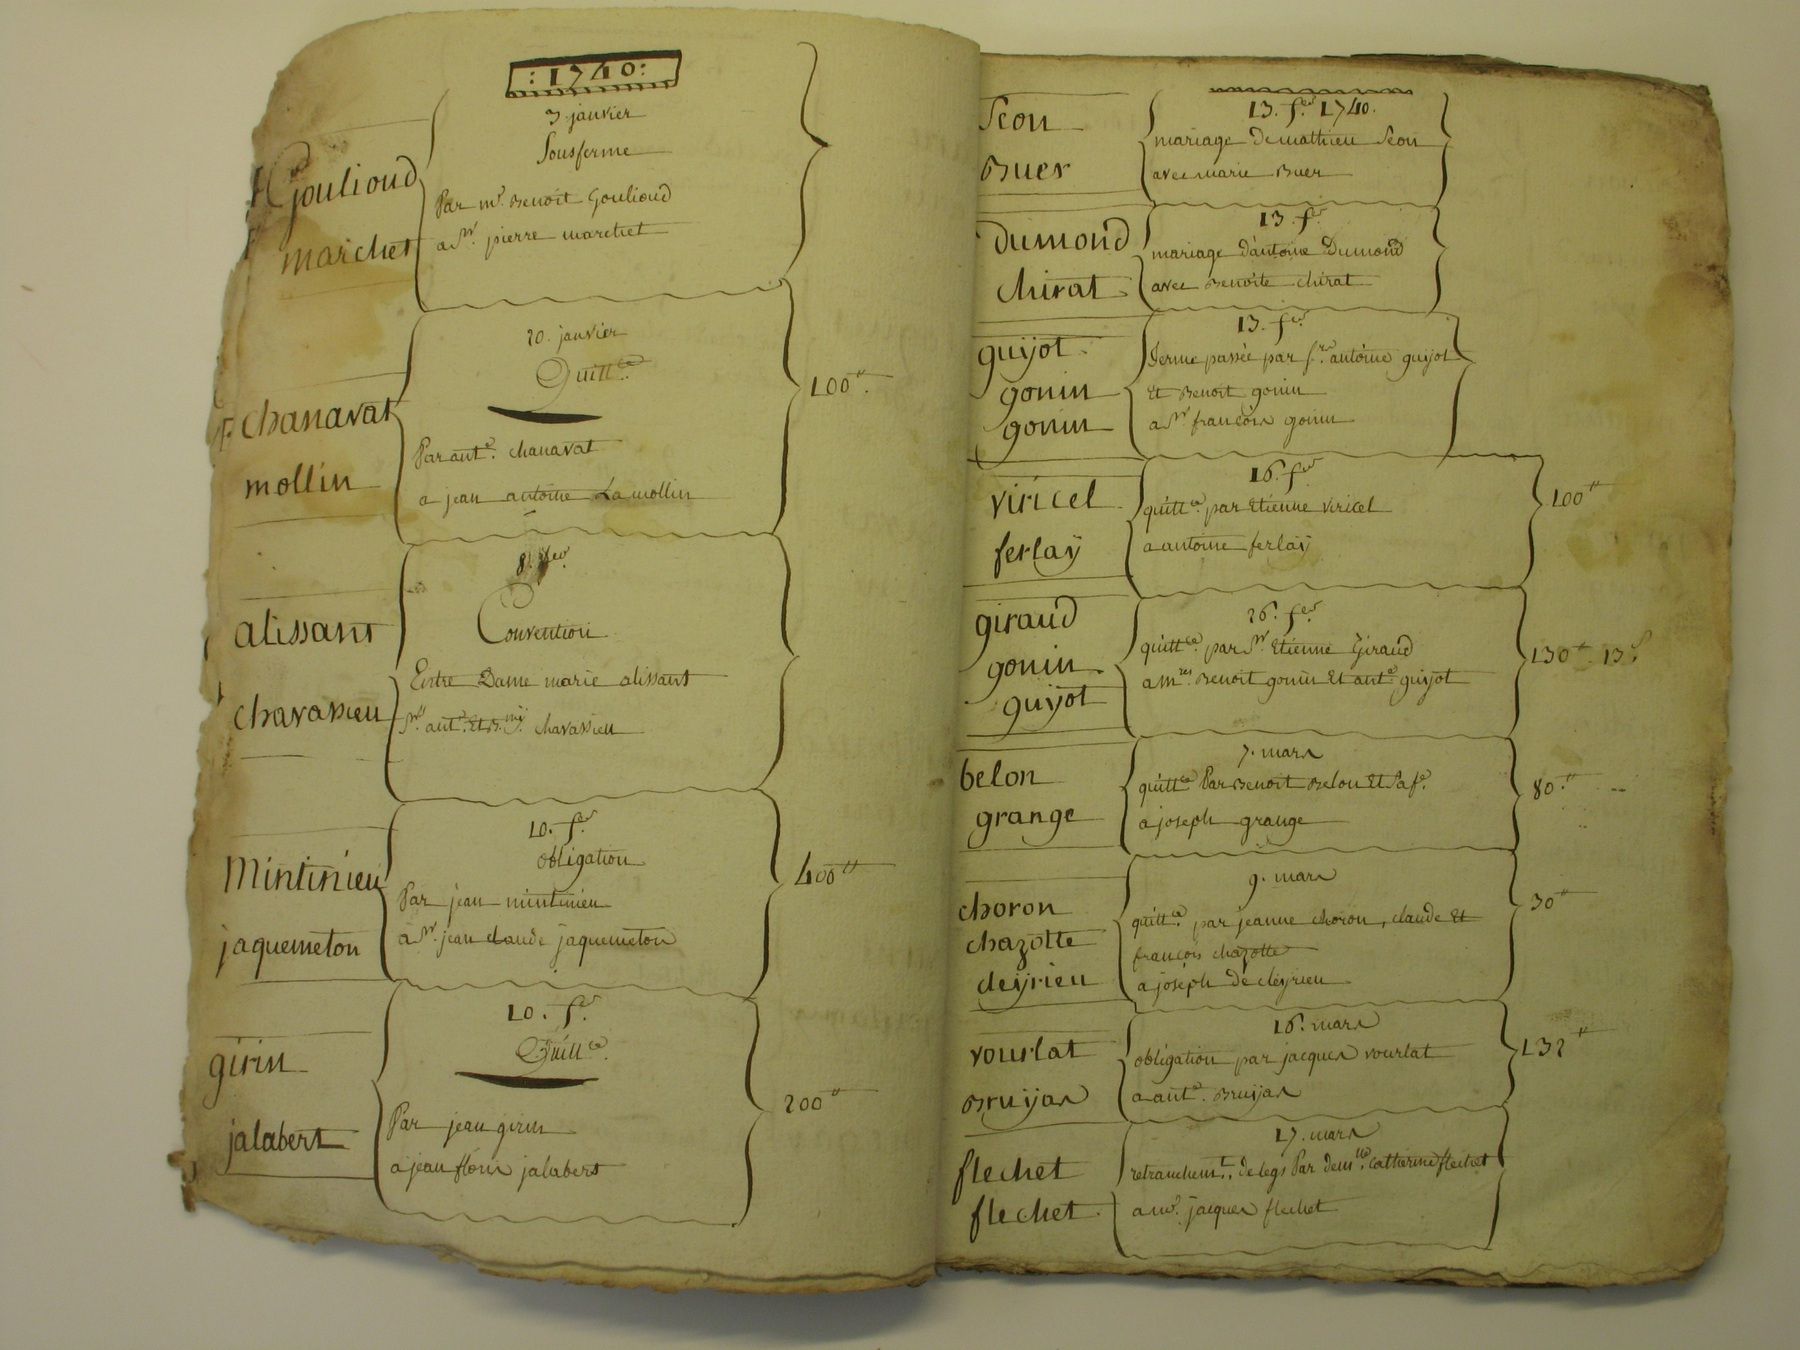 : 1740 :
Goulioud
marchet
3 janvier
Sousferme
Par mr. Benoit Goulioud
a Sr. pierre marchet
chanavat
mollin
20. janvier
Quittce.
Par ante. chanavat
a jean antoine Lamollin
100tt.
alissant
chavassieu
8. fer.
Convention
Entre Dame marie alissant
Sr. ant. Et chavassieu
Mintinieu
jaquemeton
10. fer.
obligation
Par jean mintinieu
a Sr. jean claude jaquemeton
400tt
girin
jalabert
10. fer.
Quittce.
Par jean girin
a jean floris jalabert
200tt
Seon
Buer
13. fer. 1740.
mariage De mathieu Seon
avec marie Buer
Dumond
chirat
13. fer
mariage d'antoine Dumond
avec Benoite chirat
guijot
gonin
gonin
13. fer.
ferme passée par antoine guijot
Et Benoit gonin
a Sr francois gonin
viricel
ferlaÿ
16. fer
quittce. par Etienne viricel
a antoine ferlaÿ
100tt
giraud
gonin
guijot
26. fer
quittce. par Sr. Etienne Giraud
a mres. Benoit gonin Et ante guijot
130tt. 13s
belon
grange
7. mars
quittce Par Benoit Belon Et Sa fe.
a joseph grange
80.tt
choron
chazotte
deÿrieu
9. mars
quittce. par jeanne choron, claude Et
francois chazotte
a joseph de deÿrieu
30tt
vourlat
Bruÿas
16. mars
obligation par jacques vourlat
a ante. Bruÿas
132tt
flechet
flechet
17. mars
retranchemt. de legs Par demlle. Catherine flechet
a mr. jacques flechet